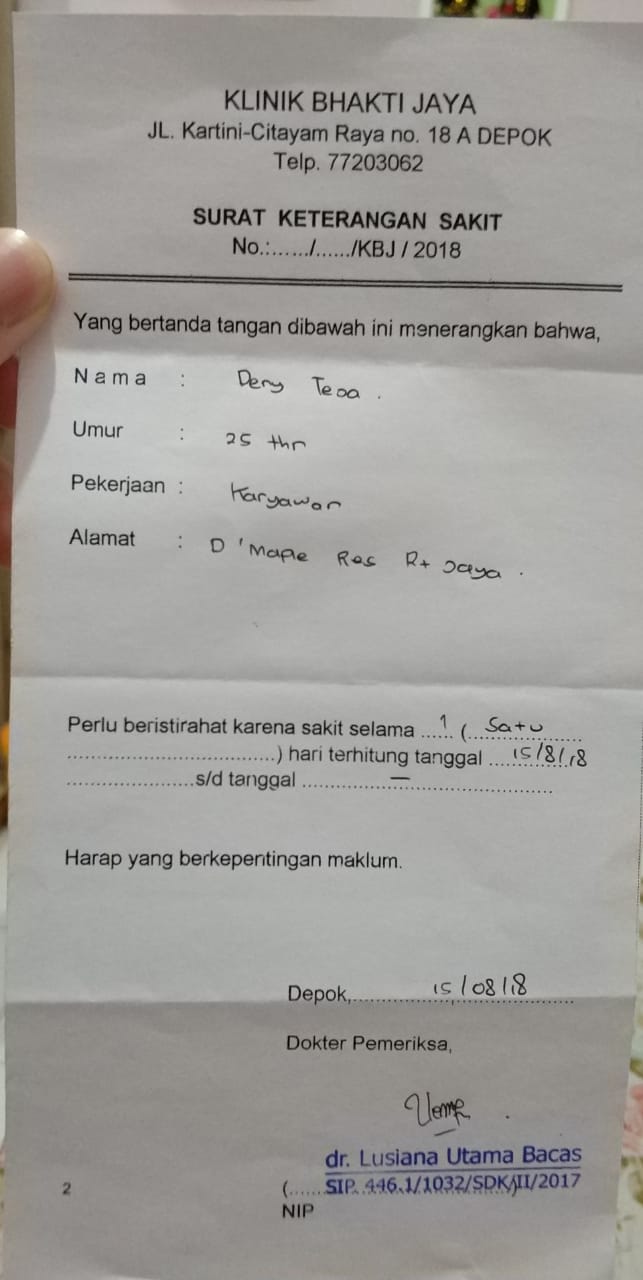 KLINIK BHAKTI JAYA
JL. Kartini-Citayam Raya no. 18 A DEPOK
Telp. 77203062
SURAT KETERANGAN SAKIT
No.:....../....../KBJ / 2018
Yang bertanda tangan dibawah ini menerangkan bahwa,
Nama : Deny
Umur : 25 thn
Pekerjaan : Karyawan
Alamat : D'Maple Res Rt Jaya.
Perlu beristirahat karena sakit selama ...1... ( Satu
..................................) hari terhitung tanggal 15/8/18
....................s/d tanggal —
Harap yang berkepentingan maklum.
Depok, 15/08/18
Dokter Pemeriksa,
dr. Lusiana Utama Bacas
2 (......SIP. 446.1/1032/SDK/II/2017
NIP